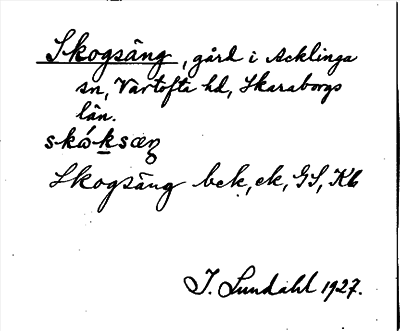 Skogsäng, gård i Acklinga
sn, Vartofta hd, Skaraborgs
län.
skóksæŋ
Skogsäng bek, ek, GS, Kb
I. Lundahl 1927.